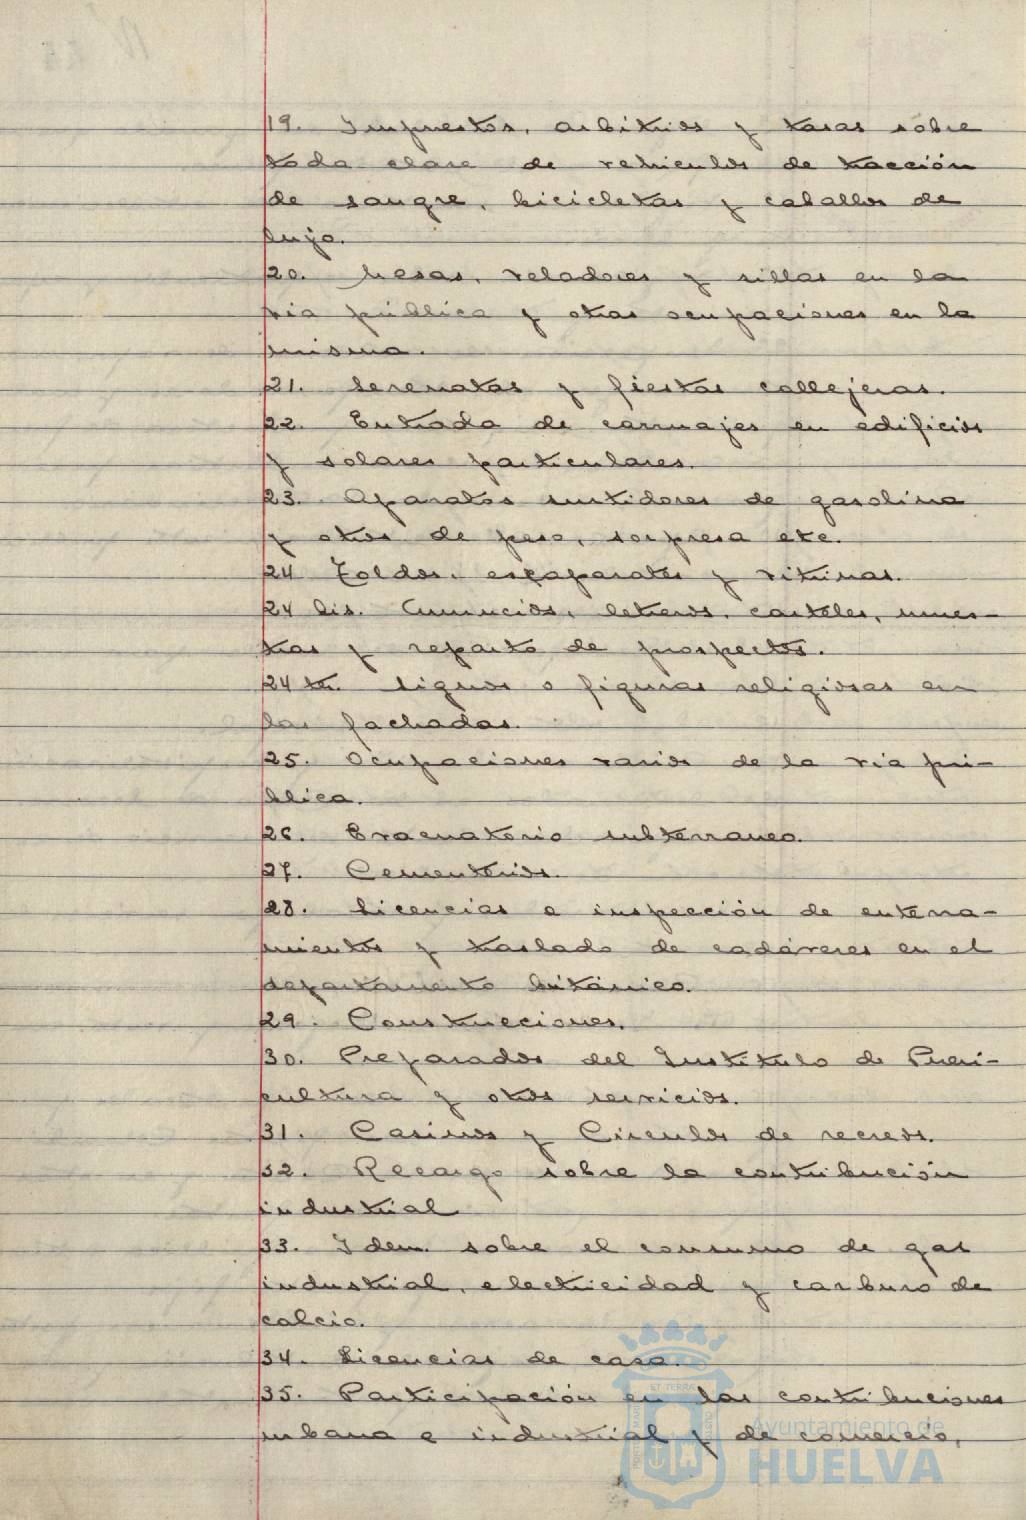 19. Impuestos, arbitrios y tasas sobre
toda clase de vehiculos de tracción
de sangre, bicicletas y caballos de
lujo.
20. Mesas, veladores y sillas en la
via pública y otras ocupaciones en la
misma.
21. Serenatas y fiestas callejeras.
22. Entrada de carruajes en edificios
y solares particulares.
23. Aparatos surtidores de gasolina
y otros de peso, sorpresa etc.
24 Toldos, escaparates y vitrinas.
24 bis. Anuncios, letreros, carteles, mues-
tras y reparto de prospectos.
24 ter. Signos o figuras religiosas en
las fachadas.
25. Ocupaciones varias de la via pú-
blica.
26. Evacuatorio subterraneo.
27. Cementerios.
28. Licencias e inspección de enterra-
mientos y traslado de cadáveres en el
departamento británico.
29. Construcciones.
30. Preparados del Instituto de Pueri-
cultura y otros servicios.
31. Casinos y Circulos de recreos.
32. Recargo sobre la contribución
industrial
33. Idem. sobre el consumo de gas
industrial, electricidad y carburo de
calcio.
34. Licencias de casa.
35. Participación en las contribuciones
urbana e industrial y de comercio,
Ayuntamiento de
HUELVA